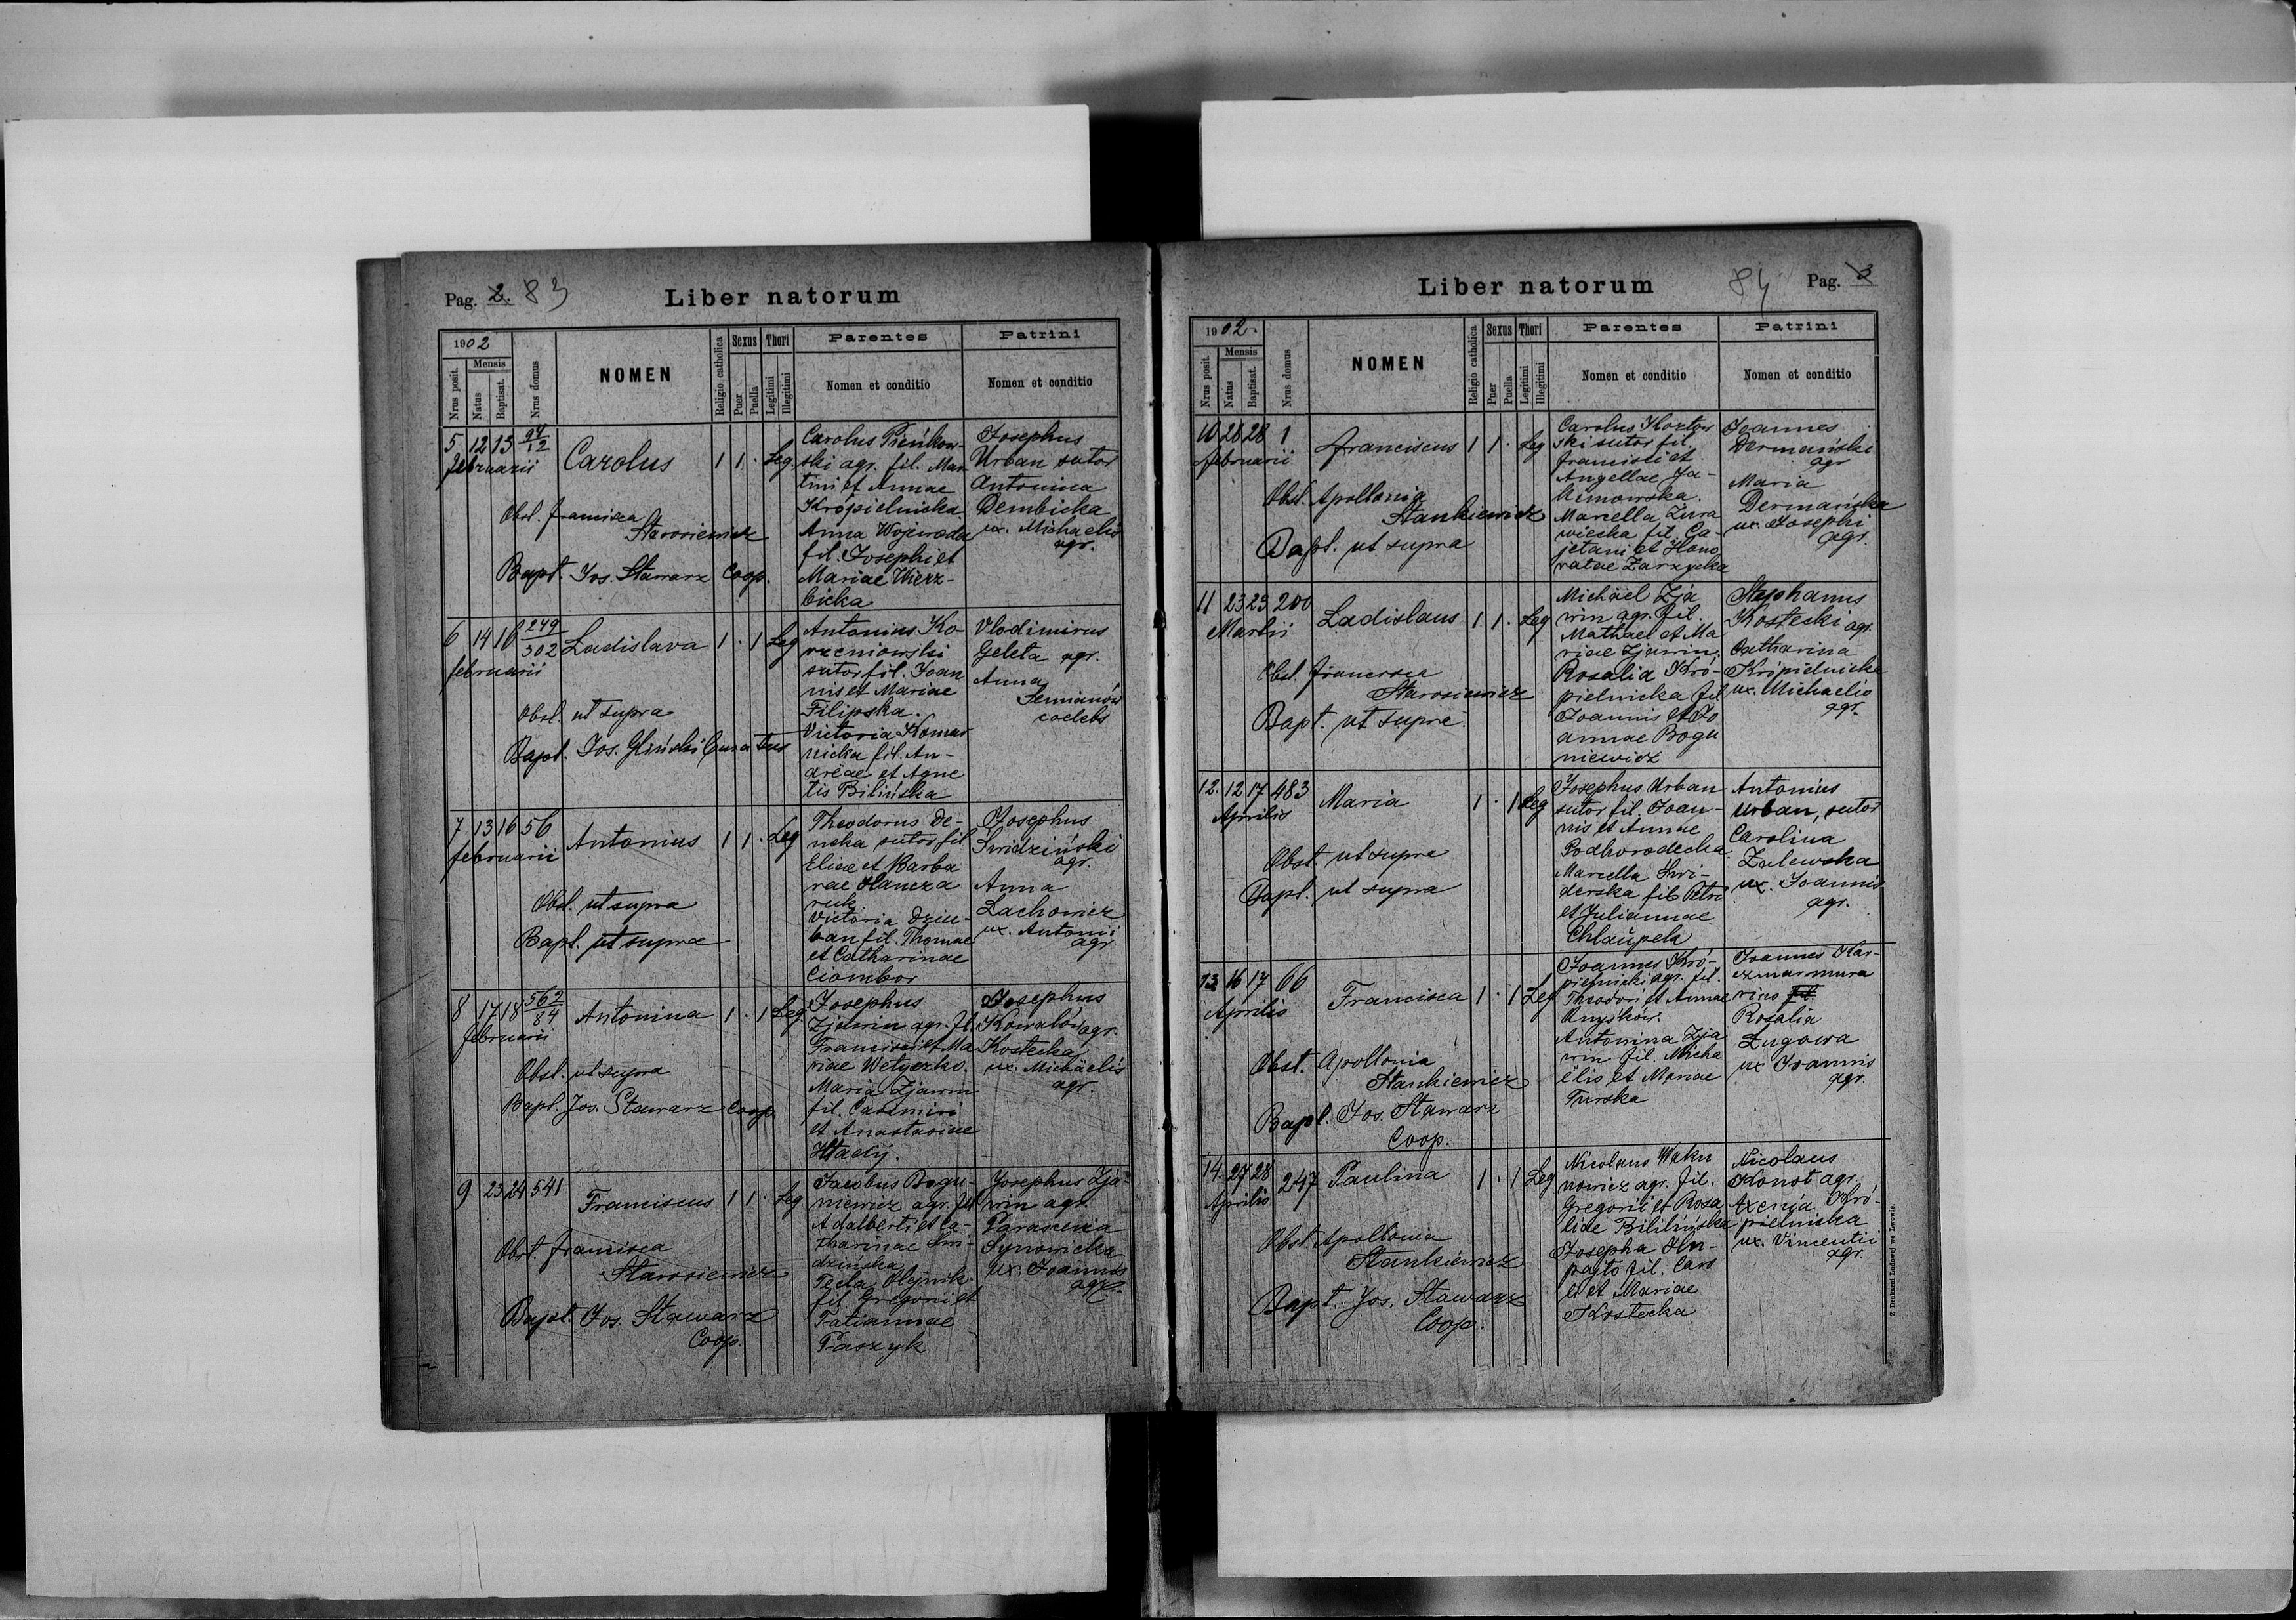 Pag. 2. 83
Liber natorum
1902
Nrus posit.
Mensis
Natus
Baptisat.
Nrus domus
NOMEN
Religio catholica
Sexus
Puer
Puella
Thori
Legitimi
Illegitimi
Parentes
Nomen et conditio
Patrini
Nomen et conditio
5 12 13 94/12
februarii
Carolus
1 1 · Leg.
Obst. Francisca
Starosiewicz
Bapt. Jos. Stawarz Coop.
Carolus Pieńkow-
ski agr. fil. Mar
tini et Annae
Krópielnicka
Anna Wojewoda
fil. Josephi et
Mariae Wierz-
bicka
Josephus
Urban sutor
Antonina
Dembicka
ux. Michaelis
agr.
6 14 16 249/302
februarii
Ladislava
1 · 1 Leg
Obst. ut supra
Bapt. Jos. Gliński Curatus
Antonius Ko-
rzeniowski
sutor fil. Joan
nis et Mariae
Filipska.
Victoria Komar
nicka fil. An-
dreae et Agne
tis Bilińska
Vlodimirus
Geleta agr.
Anna
Semianów
coelebs
7 13 16 56
februarii
Antonius
1 1 · Leg
Obst. ut supra
Bapt. ut supra
Theodorus De-
neka sutor fil
Eliae et Barba
rae Hancza
ruk.
Victoria Dziu-
ban fil. Thomae
et Catharinae
Ciombor
Josephus
Swidziński
agr.
Anna
Lachowicz
ux. Antonii
agr
8 17 18 562/84
februarii
Antonina
1 · 1 Leg.
Obst. ut supra
Bapt. Jos. Stawarz Coop
Josephus
Zjawin agr. fil.
Francisci et Ma
riae Wetyczko.
Maria Zjawin
fil. Casimiri
et Anastasiae
Hladij.
Josephus
Kowalów agr.
Kostecka
ux. Michäelis
agr.
9 23 24 541
Franciscus
1 1 · Leg
Obst. Francisca
Starosiewicz
Bapt. Jos. Stawarz
Coop.
Jacobus Bogu-
niewicz agr. fil
Adalberti et Ca-
tharinae Swi-
dzińska
Tecla Olejnik
fil. Gregorii et
Tatiannae
Paszyk
Josephus Zja-
win agr.
Paraxenia
Synowicka
ux. Joannis
agr.
Liber natorum
84 Pag. 3
1902.
Nrus posit.
Mensis
Natus
Baptisat.
Nrus domus
NOMEN
Religio catholica
Sexus
Puer
Puella
Thori
Legitimi
Illegitimi
Parentes
Nomen et conditio
Patrini
Nomen et conditio
10 28 28 1
februarii
Franciscus
1 1 · Leg
Obst. Apollonia
Stankiewicz
Bapt. ut supra
Carolus Kozłow
ski sutor fil.
Francisci et
Angellae Ja-
kimowska.
Marcella Żura
wieska fil. Ca-
jetani et Hono
ratae Zarzycka
Joannes
Dermański
agr
Maria
Dermańska
ux. Josephi
agr.
11 23 23 200
Martii
Ladislaus
1 1 · Leg
Obst. Francisca
Starosiewicz
Bapt. ut supra
Michäel Zja
win agr. fil.
Mathaei et Ma
riae Zjawin.
Rosalia Kró-
pielnicka fil
Joannis et Jo
annae Bogu
niewicz
Stephanus
Kostecki agr.
Catharina
Krópielnicka
ux. Michaelis
agr.
12. 12 17 483
Aprilis
Maria
1 · 1 Leg
Obst. ut supra
Bapt. ut supra
Josephus Urban
sutor fil. Joan-
nis et Annae
Podhorodecka.
Marcella Swi-
derska fil. Petri
et Juliannae
Chłaŭpela
Antonius
Urban, sutor
Carolina
Zalewska
ux. Joannis
agr.
13 16 17 66
Aprilis
Francisca
1 · 1 Leg
Obst. Apollonia
Stankiewicz
Bapt. Jos. Stawarz
Coop.
Joannes Kró-
pielnicki agr. fil.
Theodori et Annae
Onyśków.
Antonina Zja
win fil. Micha
ëlis et Mariae
Turska
Joannes Kar-
czmar mura
rius
Rosalia
Zugowa
ux Joannis
agr.
14. 27 28 247
Aprilis
Paulina
1 · 1 Leg
Obst. Apollonia
Stankiewicz
Bapt. Jos. Stawarz
Coop.
Nicolaus Waku
nowicz agr. fil.
Gregorii et Rosa
liae Bilińska
Josepha Hu-
pajło fil. Caro
li et Mariae
Kostecka
Nicolaus
Konot agr.
Axenia Kró-
pielnicka
ux. Vincentii
agr.
Z Drukarni Ludowej we Lwowie.